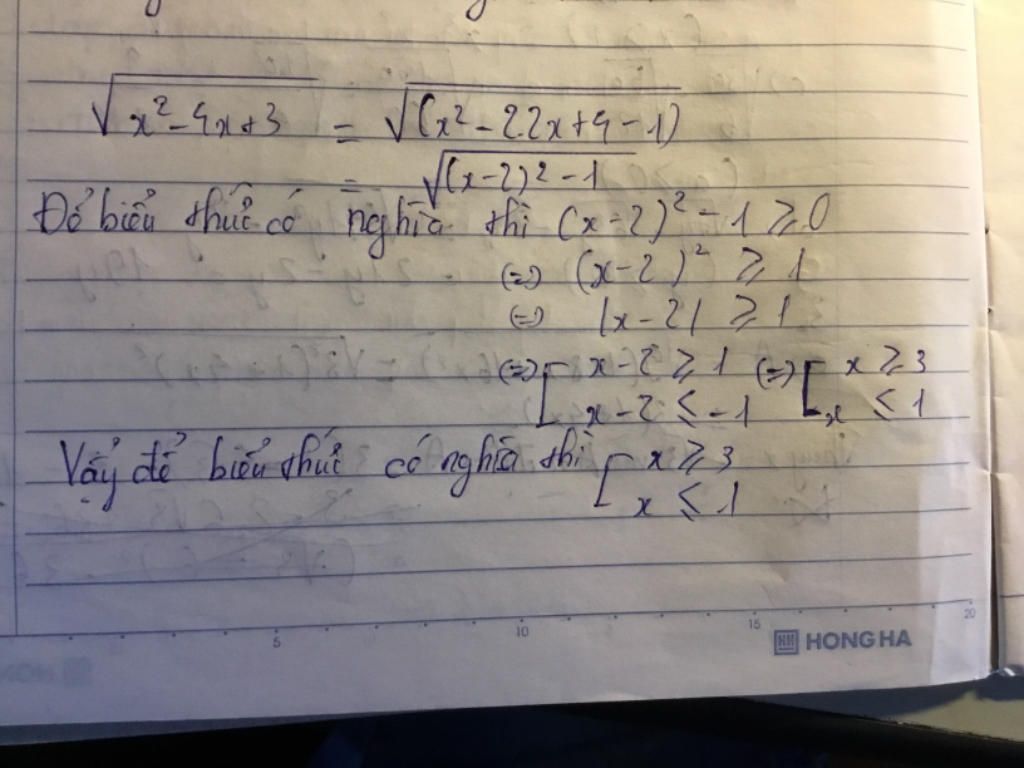 √(x² - 4x + 3) = √((x² - 2.2x + 4 - 1))
= √((x-2)² - 1)
Để biểu thức có nghĩa thì (x-2)² - 1 ≥ 0
(=>) (x-2)² ≥ 1
(=) |x-2| ≥ 1
(=>) [ x-2 ≥ 1 (=>) [ x ≥ 3
x-2 ≤ -1 x ≤ 1
Vậy để biểu thức có nghĩa thì [ x ≥ 3
x ≤ 1
5 10 15 20
HONG HA